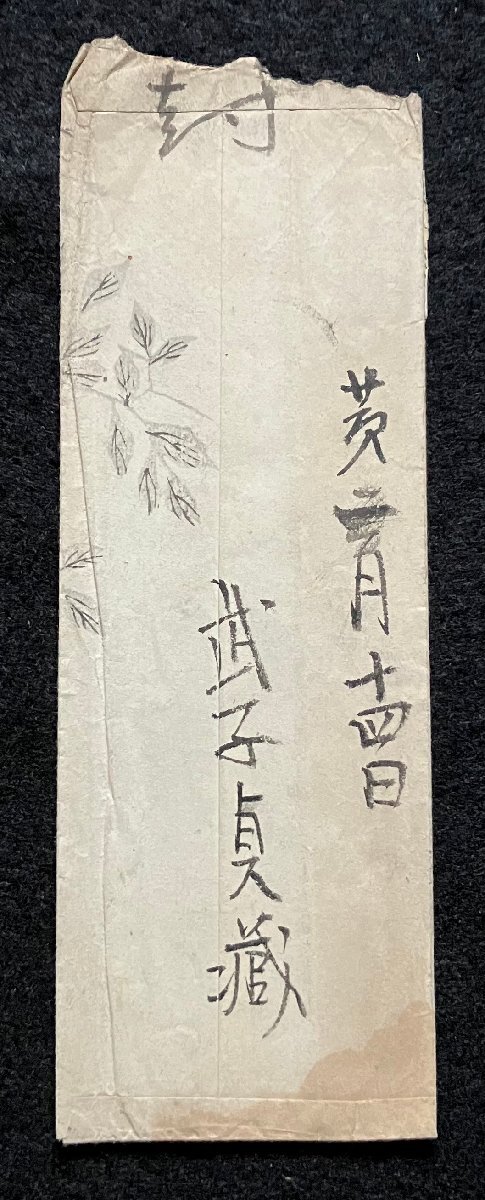 封
二月十四日
武子貞蔵